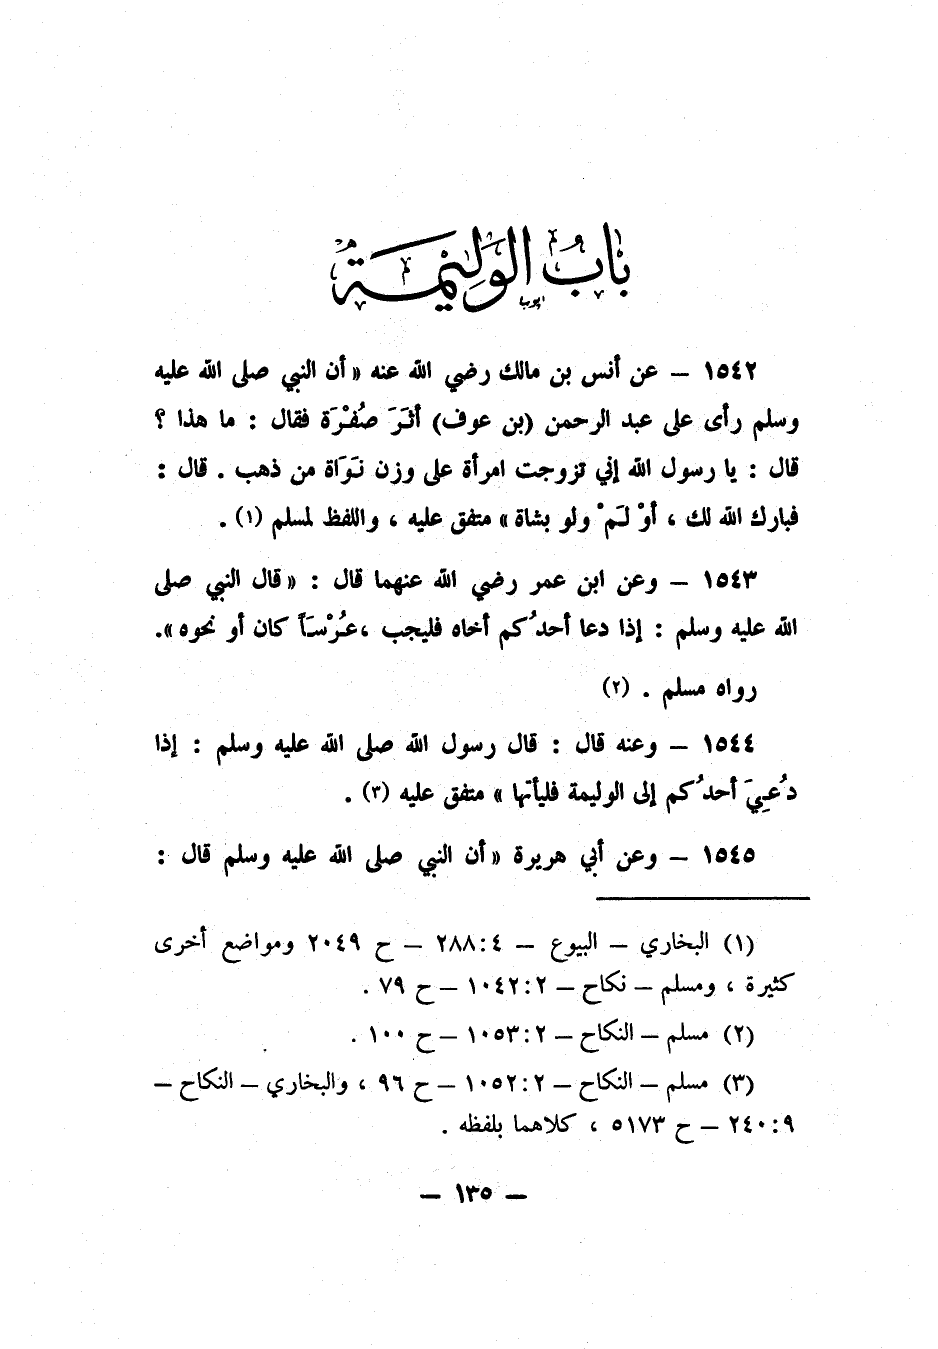 بَابُ الوَلِيْمَة
١٥٤٢ – عن أنس بن مالك رضي الله عنه « أن النبي صلى الله عليه
وسلم رأى على عبد الرحمن (بن عوف) أثَرَ صُفْرَة فقال : ما هذا ؟
قال : يا رسول الله إني تزوجت امرأة على وزن نَوَاة من ذهب . قال :
فبارك الله لك ، أوْ لَمْ ولو بشاة » متفق عليه ، واللفظ لمسلم (١) .
١٥٤٣ – وعن ابن عمر رضي الله عنهما قال : « قال النبي صلى
الله عليه وسلم : إذا دعا أحدُكم أخاه فليجب ،عُرْسَاً كان أو نحوه ».
رواه مسلم . (٢)
١٥٤٤ – وعنه قال : قال رسول الله صلى الله عليه وسلم : إذا
دُعِيَ أحدُكم إلى الوليمة فليأتها » متفق عليه (٣) .
١٥٤٥ – وعن أبي هريرة « أن النبي صلى الله عليه وسلم قال :
(١) البخاري – البيوع – ٢٨٨:٤ – ح ٢٠٤٩ ومواضع أخرى
كثيرة ، ومسلم – نكاح – ١٠٤٢:٢ – ح ٧٩ .
(٢) مسلم – النكاح – ١٠٥٣:٢ – ح ١٠٠ .
(٣) مسلم – النكاح – ١٠٥٢:٢ – ح ٩٦ ، والبخاري – النكاح –
٢٤٠:٩ – ح ٥١٧٣ ، كلاهما بلفظه .
– ١٣٥ –